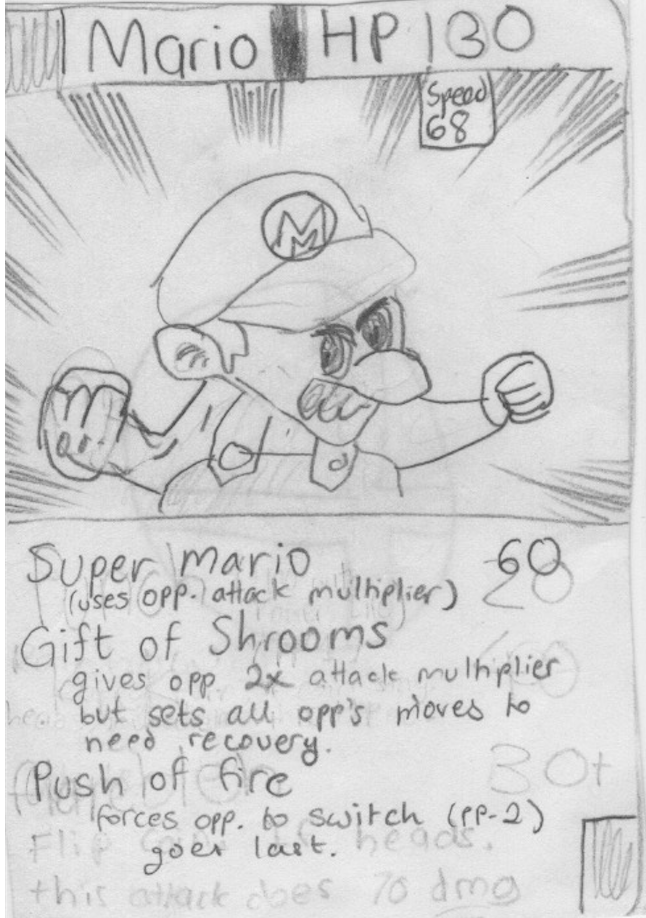 Mario HP 130
Speed
68
M
Super Mario 60
(uses opp. attack multiplier)
Gift of Shrooms
gives opp. 2x attack multiplier
but sets all opp's moves to
need recovery.
Push of fire 30+
forces opp. to switch (pp-2)
Flip heads.
goes last.
this attack does 70 dmg